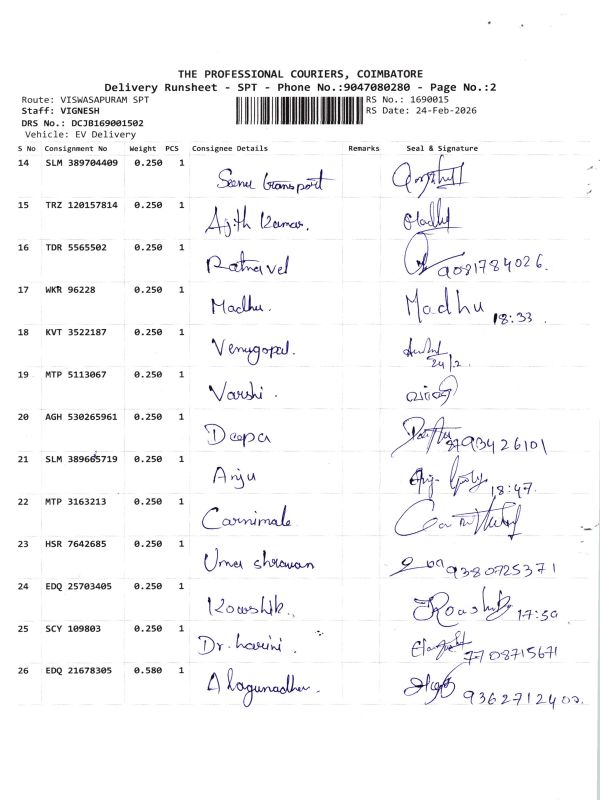 THE PROFESSIONAL COURIERS, COIMBATORE
Delivery Runsheet - SPT - Phone No.:9047080280 - Page No.:2
Route: VISWASAPURAM SPT RS No.: 1690015
Staff: VIGNESH RS Date: 24-Feb-2026
DRS No.: DCJB169001502
Vehicle: EV Delivery
S No Consignment No Weight PCS Consignee Details Remarks Seal & Signature
14 SLM 389704409 0.250 1 Seenu transport
15 TRZ 120157814 0.250 1 Ajith Kumar. Madhu
16 TDR 5565502 0.250 1 Ratnavel 9081784026.
17 WKR 96228 0.250 1 Madhu. Madhu 18:33
18 KVT 3522187 0.250 1 Venugopal. 24/2
19 MTP 5113067 0.250 1 Varshi.
20 AGH 530265961 0.250 1 Deepa 8793426101
21 SLM 389665719 0.250 1 Anju 18:47.
22 MTP 3163213 0.250 1 Carnimale
23 HSR 7642685 0.250 1 Umer shrawan 9380725371
24 EDQ 25703405 0.250 1 Kowshik. 17:50
25 SCY 109803 0.250 1 Dr. harini. 7708715671
26 EDQ 21678305 0.580 1 Alagunadhu. 9362712400.